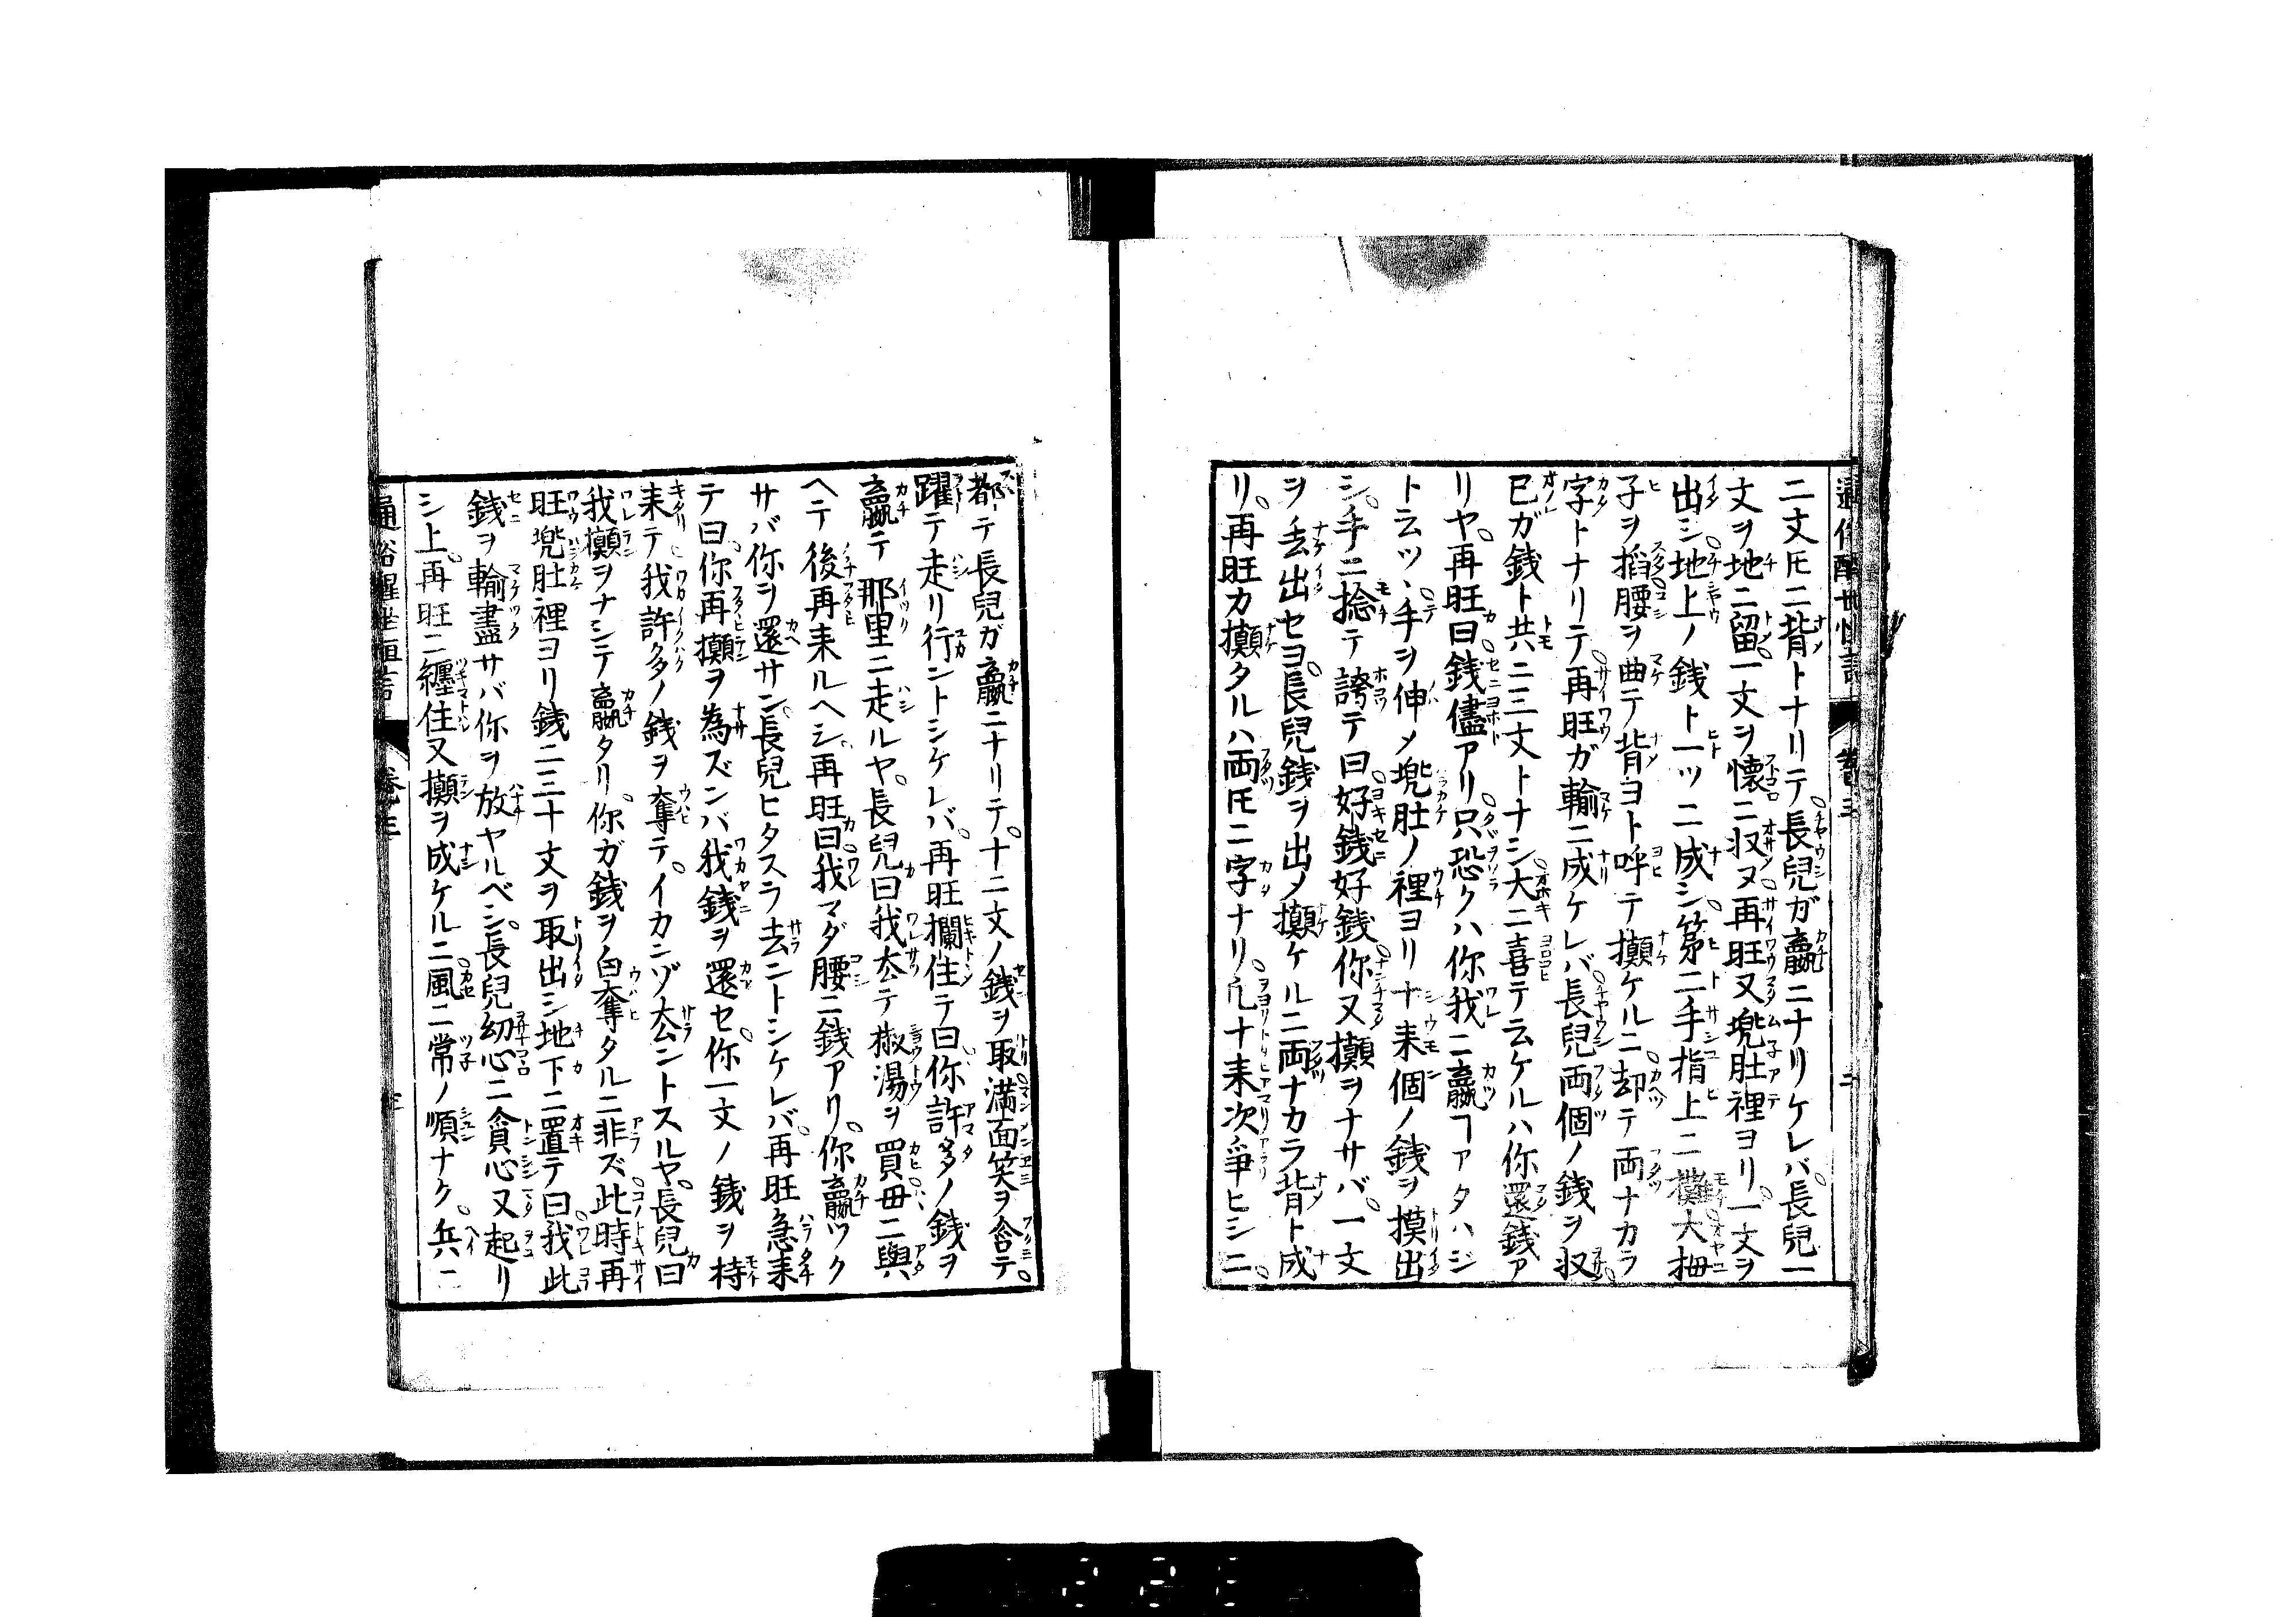 二文𪜈ニ背トナリテ長兒ガ贏ニナリケレバ長兒一
文ヲ地ニ留一文ヲ懷ニ収ヌ再旺又兠肚裡ヨリ一文ヲ
出シ地上ノ銭ト一ツニ成シ第二手指上ニ攤大拇
子ヲ搯腰ヲ曲テ背ヨト呼テ攧ケルニ却テ両ナカラ
字トナリテ再旺ガ輸ニ成ケレバ長兒両個ノ銭ヲ収
已ガ銭ト共ニ三文トナシ大ニ喜テ云ケルハ你還銭ア
リヤ再旺曰銭儘アリ只恐クハ你我ニ贏ヿアタハジ
ト云ツヽ手ヲ伸メ兠肚ノ裡ヨリ十来個ノ銭ヲ摸出
シ手ニ捻テ誇テ曰好銭好銭你又攧ヲナサバ一文
ヲ丢出セヨ長兒銭ヲ出メ攧ケルニ両ナカラ背ト成
リ再旺カ攧タルハ両𪜈ニ字ナリ凡十来次爭ヒシニ
都テ長兒ガ贏ニナリテ十二文ノ銭ヲ取満面笑ヲ含テ
躍テ走リ行ントシケレバ再旺攔住テ曰你許多ノ銭ヲ
贏テ那里ニ走ルヤ長兒曰我厺テ椒湯ヲ買毋ニ與
ヘテ後再来ルヘシ再旺曰我マダ腰ニ銭アリ你贏ツク
サバ你ヲ還サン長兒ヒタスラ去ントシケレバ再旺急来
テ曰你再攧ヲ為ズンバ我銭ヲ還セ你一文ノ銭ヲ持
来テ我許多ノ銭ヲ奪テイカンゾ厺ントスルヤ長兒曰
我攧ヲナシテ贏タリ你ガ銭ヲ白奪タルニ非ズ此時再
旺兠肚裡ヨリ銭二三十文ヲ取出シ地下ニ置テ曰我此
銭ヲ輸盡サバ你ヲ放ヤルベシ長兒幼心ニ貪心又起リ
シ上再旺ニ纏住又攧ヲ成ケルニ風ニ常ノ順ナク兵ニ
通俗醒世恒言 卷三